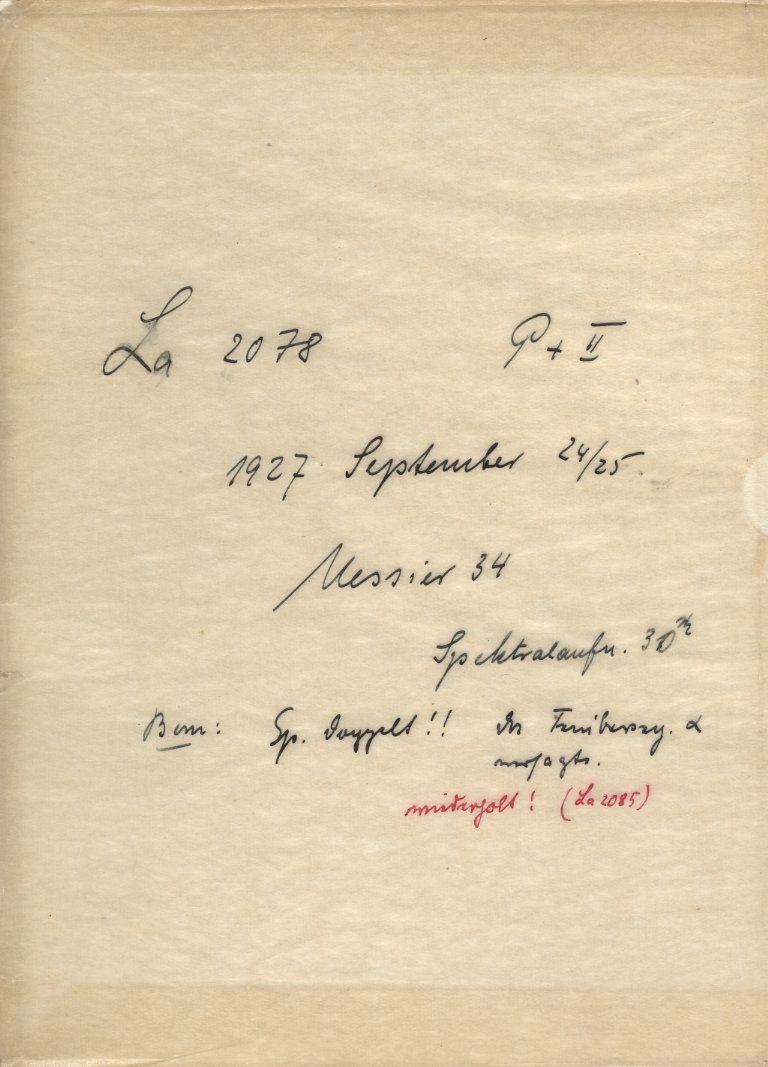 La 2078 P + II
1927 September 24/25.
Messier 34
Spektralaufn. 30ᵐ
Bem: Sp. doppelt!! die Feinbeweg. α
versagte.
wiederholt! (La 2085)